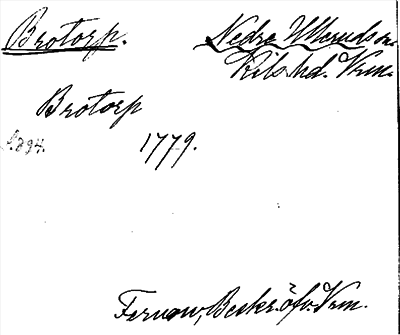 Brotorp.
Nedre Ulleruds sn.
Kils hd. Vrm.
Brotorp
s. 294. 1779.
Fernow, Beskr. öfv. Vrm.